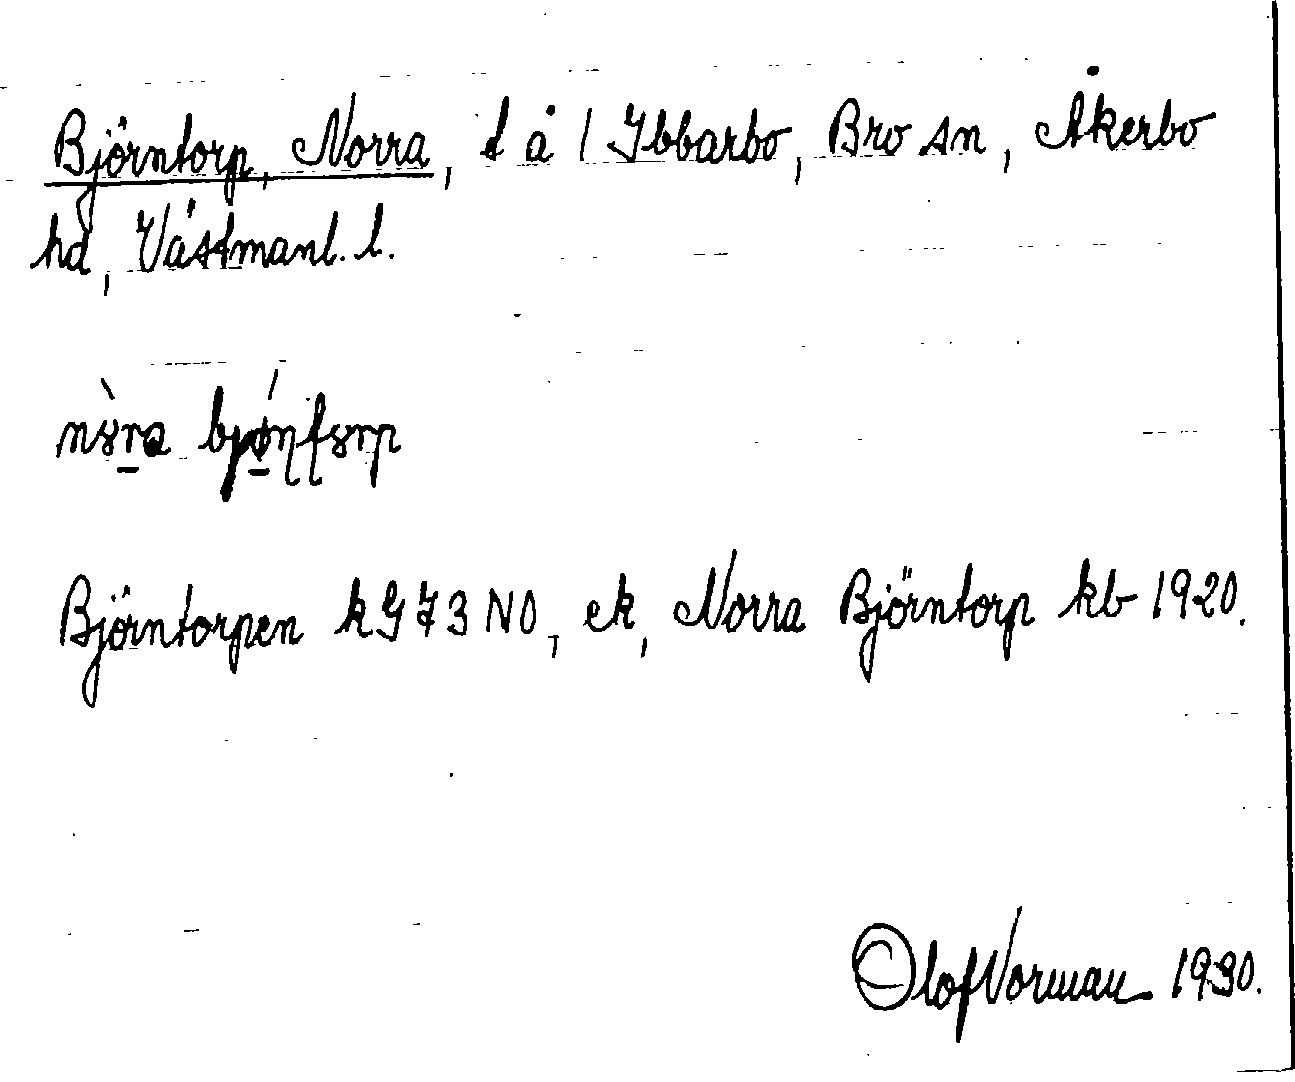 Björntorp, Norra, t å 1 Ybbarbo, Bro sn, Åkerbo
hd, Västmanl. l.
Björntorpen k G 73 NO, ek, Norra Björntorp kb 1920.
Olof Norman 1930.